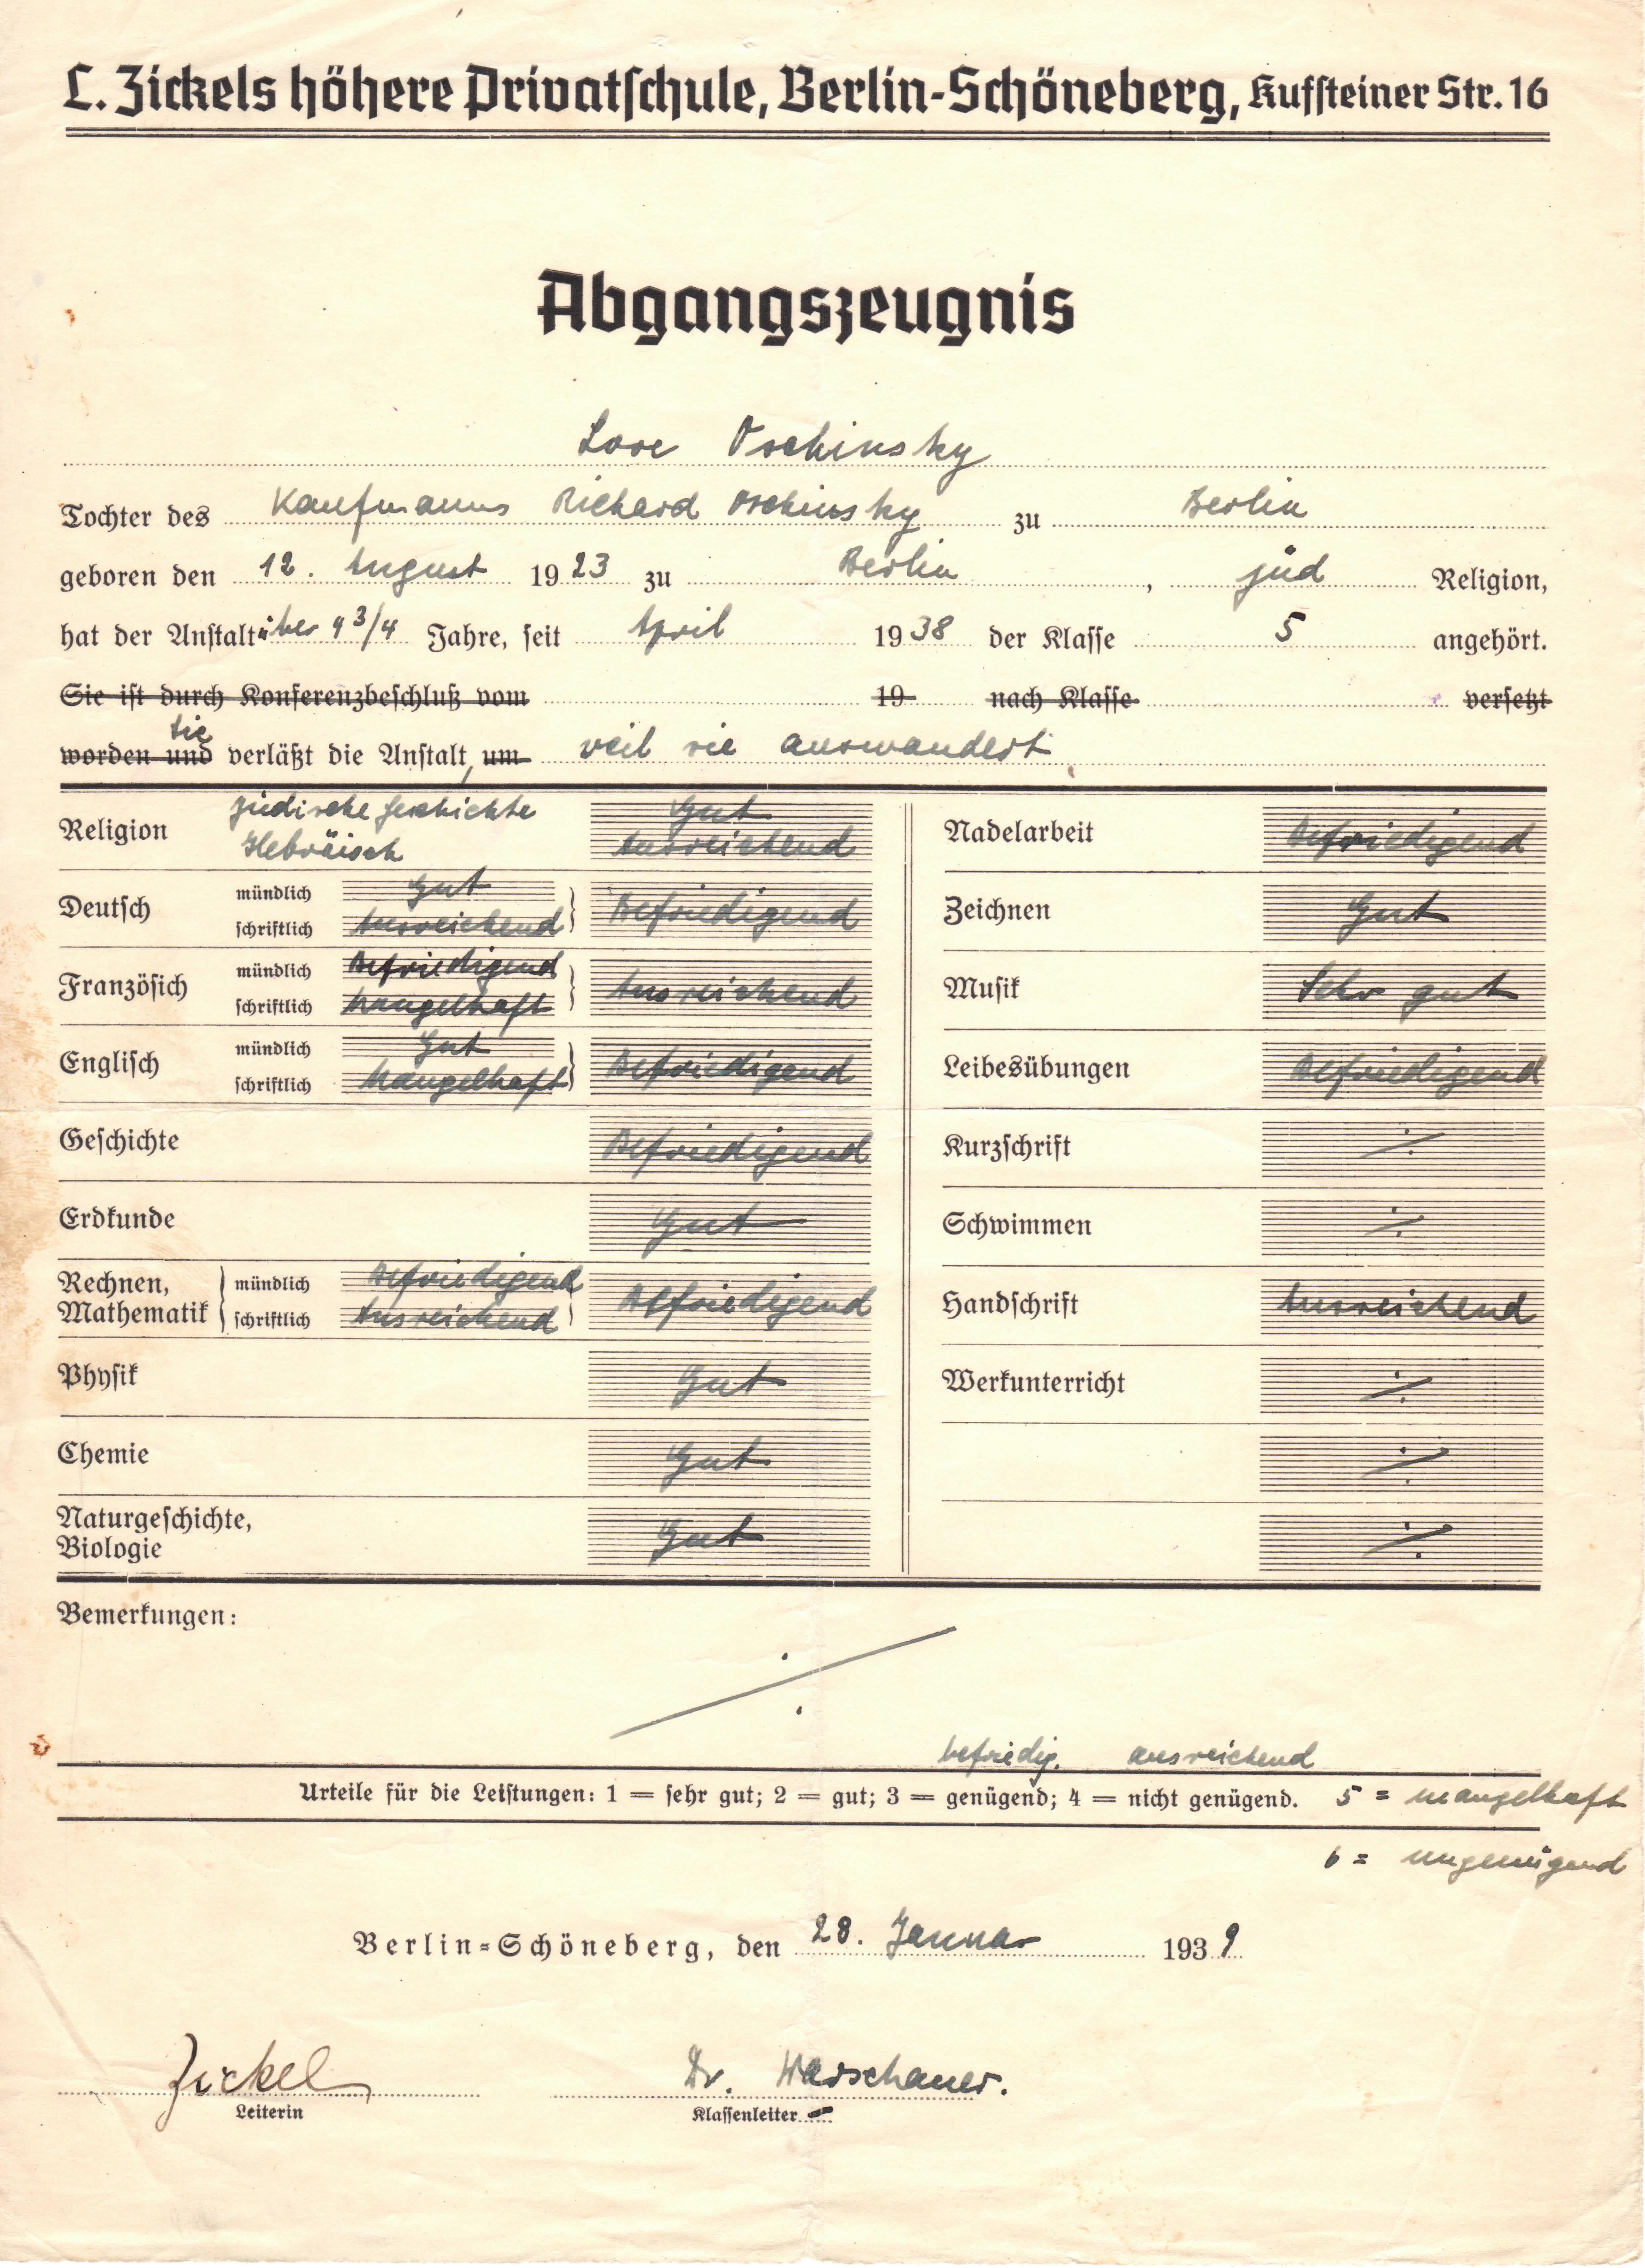 L. Zickels höhere Privatschule, Berlin-Schöneberg, Kufsteiner Str. 16
Abgangszeugnis
Lore Oschinsky
Tochter des Kaufmanns Richard Oschinsky zu Berlin
geboren den 12. August 1923 zu Berlin, jüd Religion,
hat der Anstalt über 9 3/4 Jahre, seit April 1938 der Klasse 5 angehört.
Sie ist durch Konferenzbeschluß vom 19 nach Klasse versetzt
sie
worden und verläßt die Anstalt, um weil sie auswandert
Religion Jüdische Geschichte Gut
Hebräisch Ausreichend
Deutsch mündlich Gut
schriftlich Ausreichend } Befriedigend
Französich mündlich Befriedigend
schriftlich Mangelhaft } Ausreichend
Englisch mündlich Gut
schriftlich Mangelhaft } Befriedigend
Geschichte Befriedigend
Erdkunde Gut
Rechnen, Mathematik { mündlich Befriedigend
schriftlich Ausreichend } Befriedigend
Physik Gut
Chemie Gut
Naturgeschichte,
Biologie Gut
Nadelarbeit Befriedigend
Zeichnen Gut
Musik Sehr gut
Leibesübungen Befriedigend
Kurzschrift ÷
Schwimmen ÷
Handschrift Ausreichend
Werkunterricht ÷
÷
÷
Bemerkungen: ÷
befriedig. ausreichend
Urteile für die Leistungen: 1 = sehr gut; 2 = gut; 3 = genügend; 4 = nicht genügend. 5 = mangelhaft
6 = ungenügend
Berlin-Schöneberg, den 28. Januar 1939
Zickel Dr. Warschauer.
Leiterin Klassenleiter